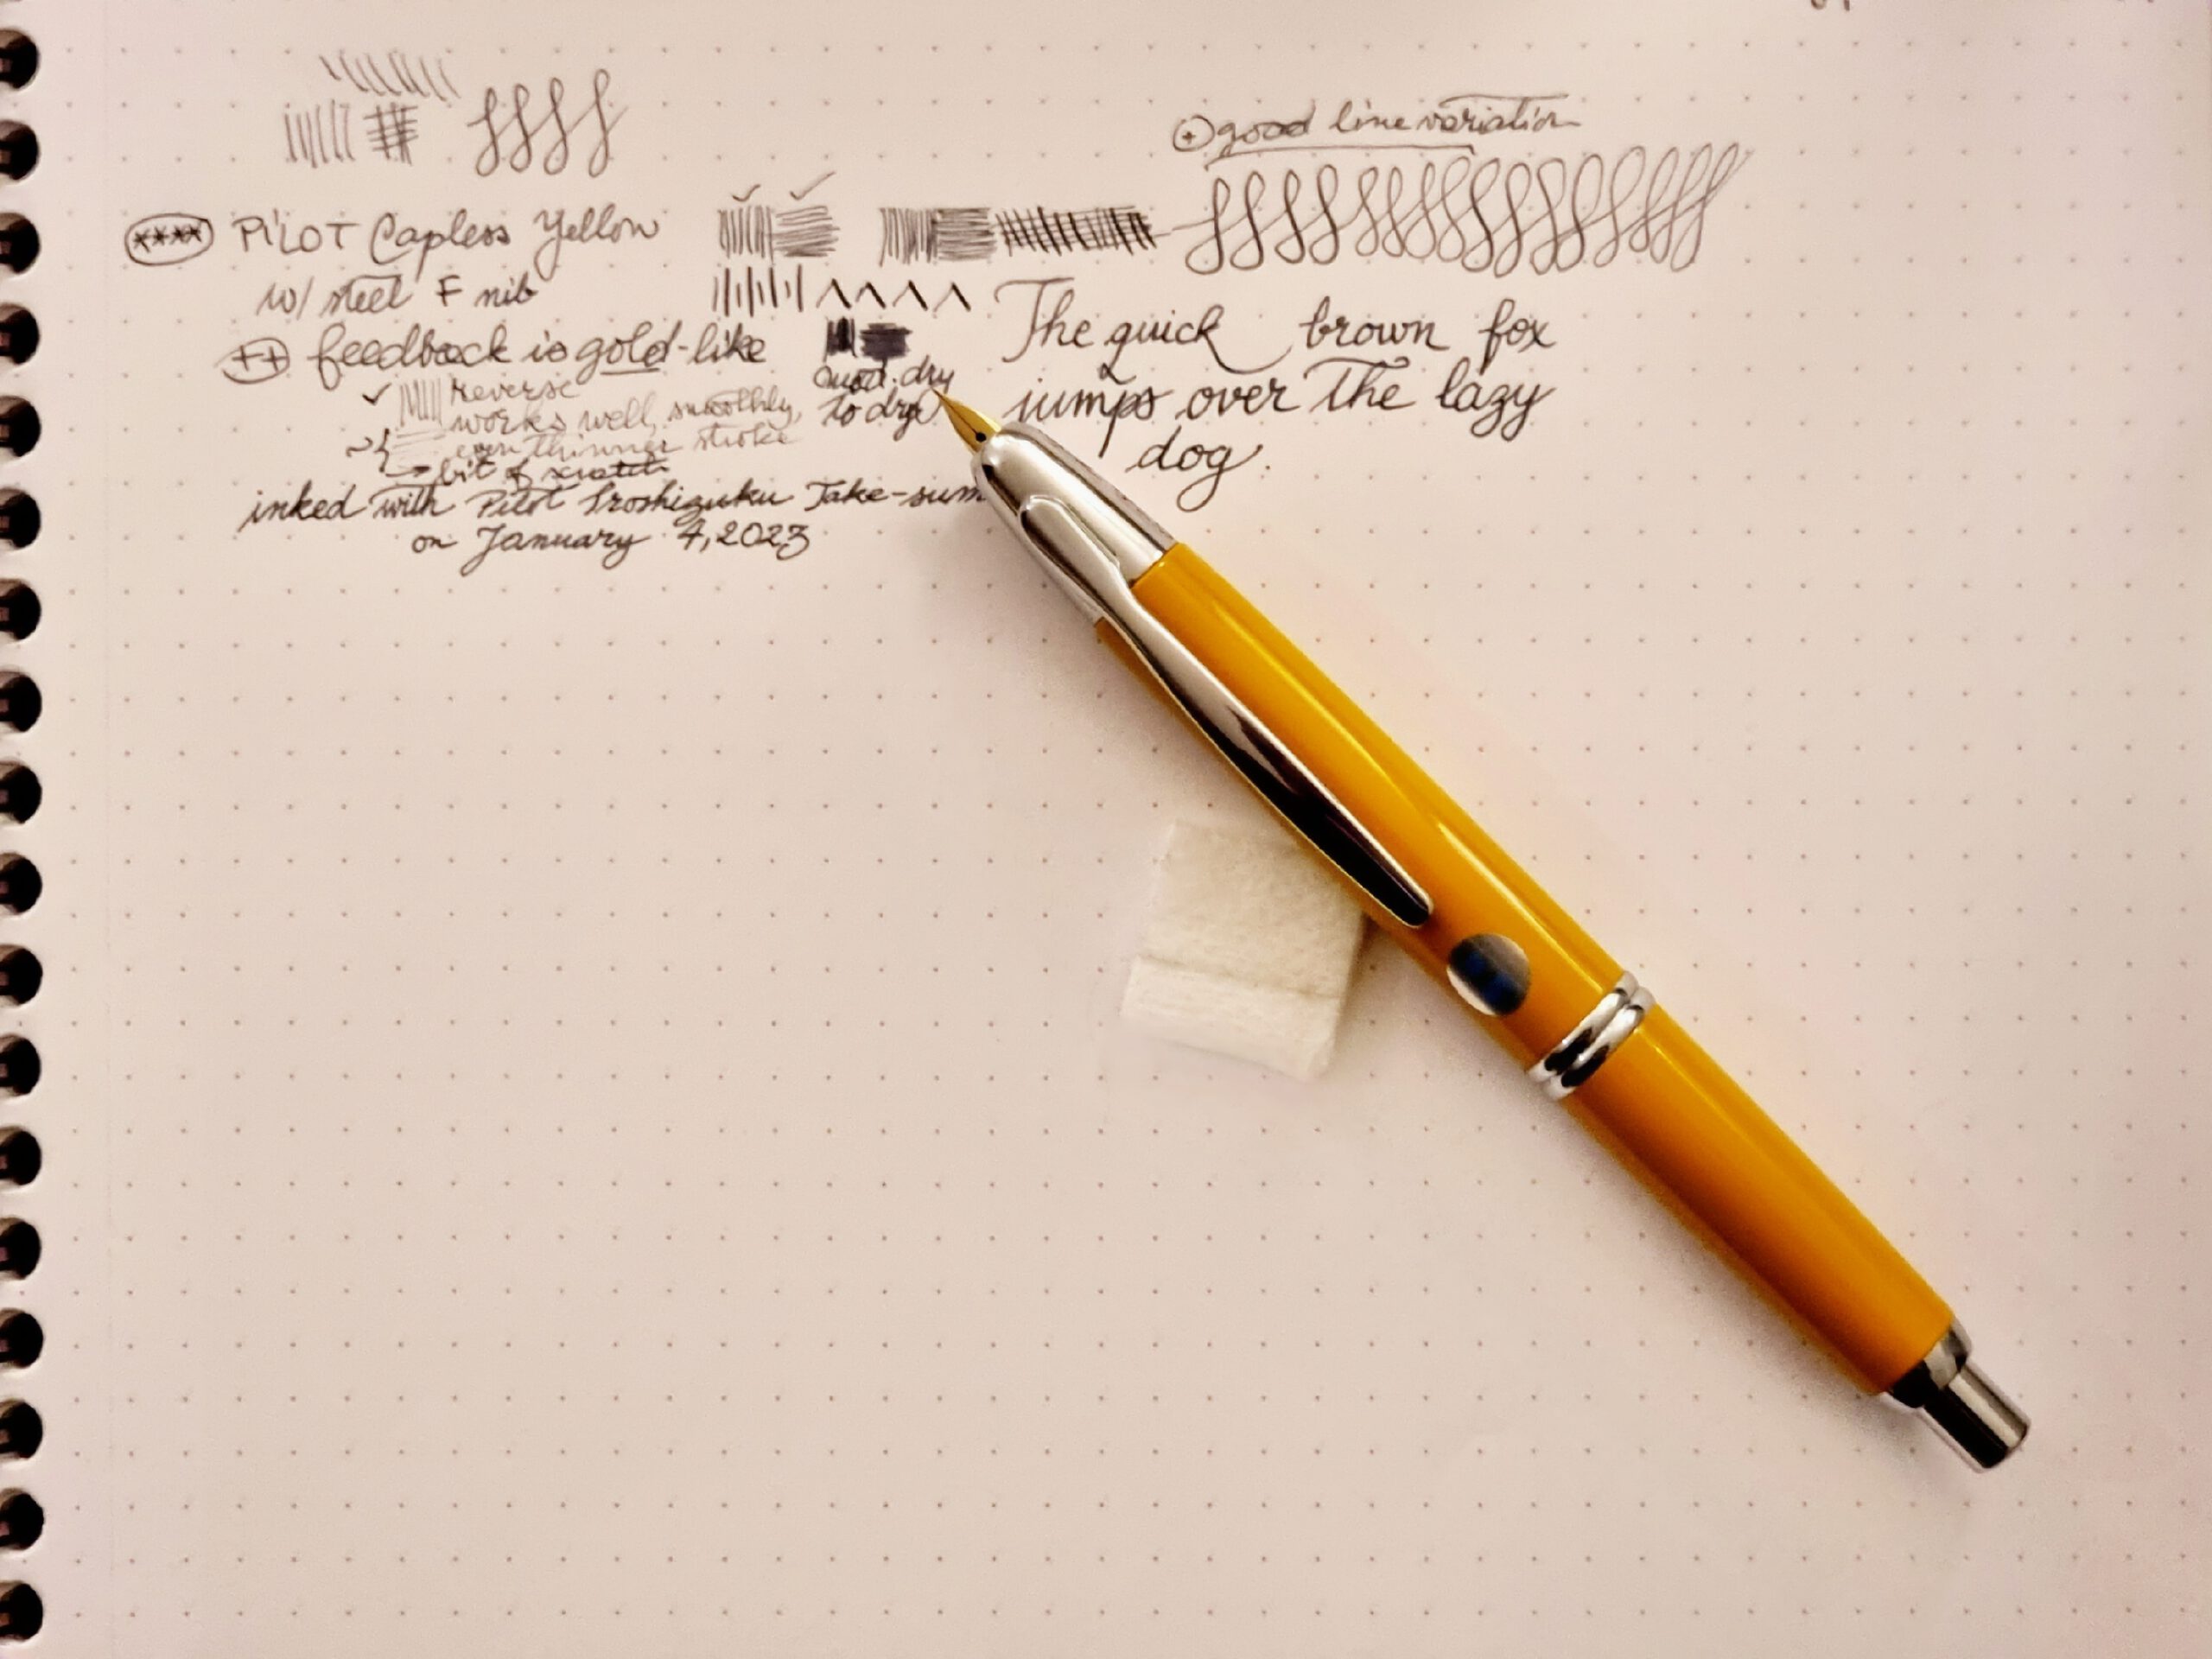 ⊕ good line variation
**** PiLOT Capless Yellow
w/ steel F nib
++ feedback is gold-like
reverse
works well, smoothly,
even thinner stroke
bit of scratch
mod. dry
to dry
The quick brown fox
jumps over the lazy
dog.
inked with Pilot Iroshizuku Take-sum
on January 4, 2023